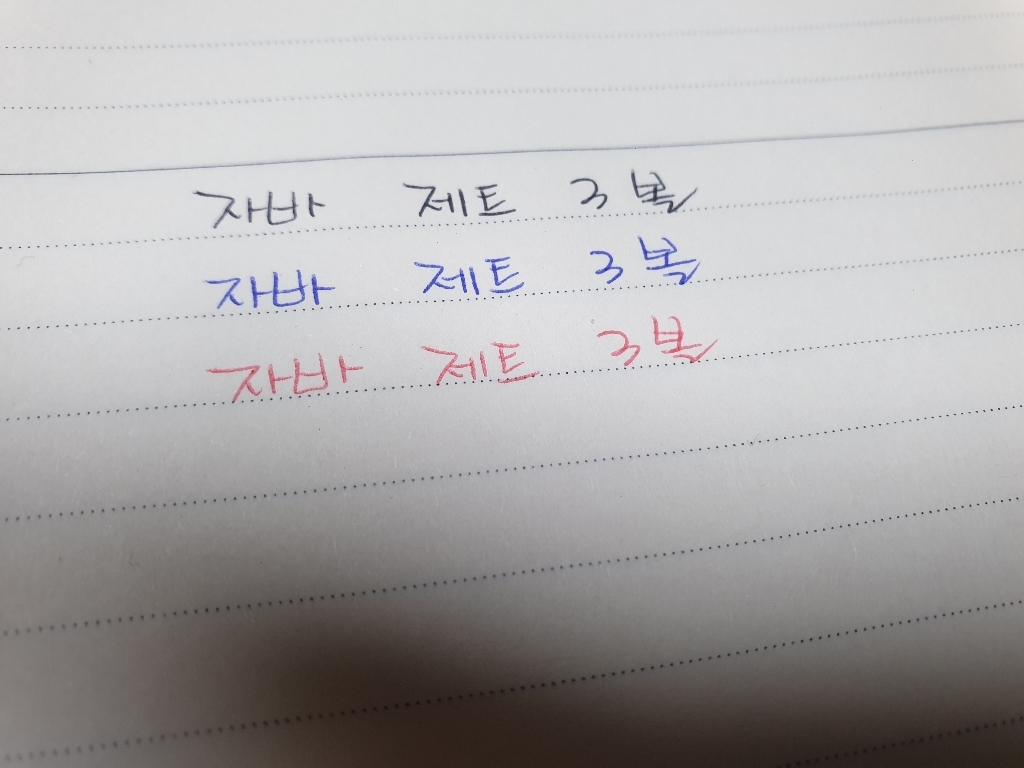 자바 제트 3 볼
자바 제트 3 볼
자바 제트 3 볼